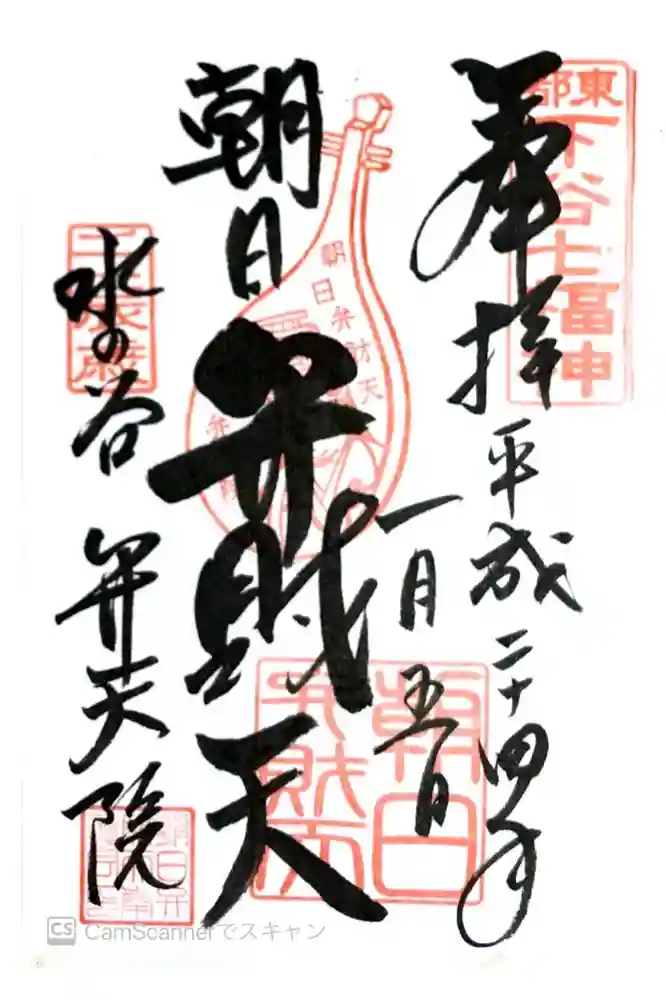 奉拝
平成二十四年
一月五日
朝日弁財天
水の谷
弁天院
東都
下谷七福神
朝日弁財天
朝日
弁財天
CS CamScannerでスキャン